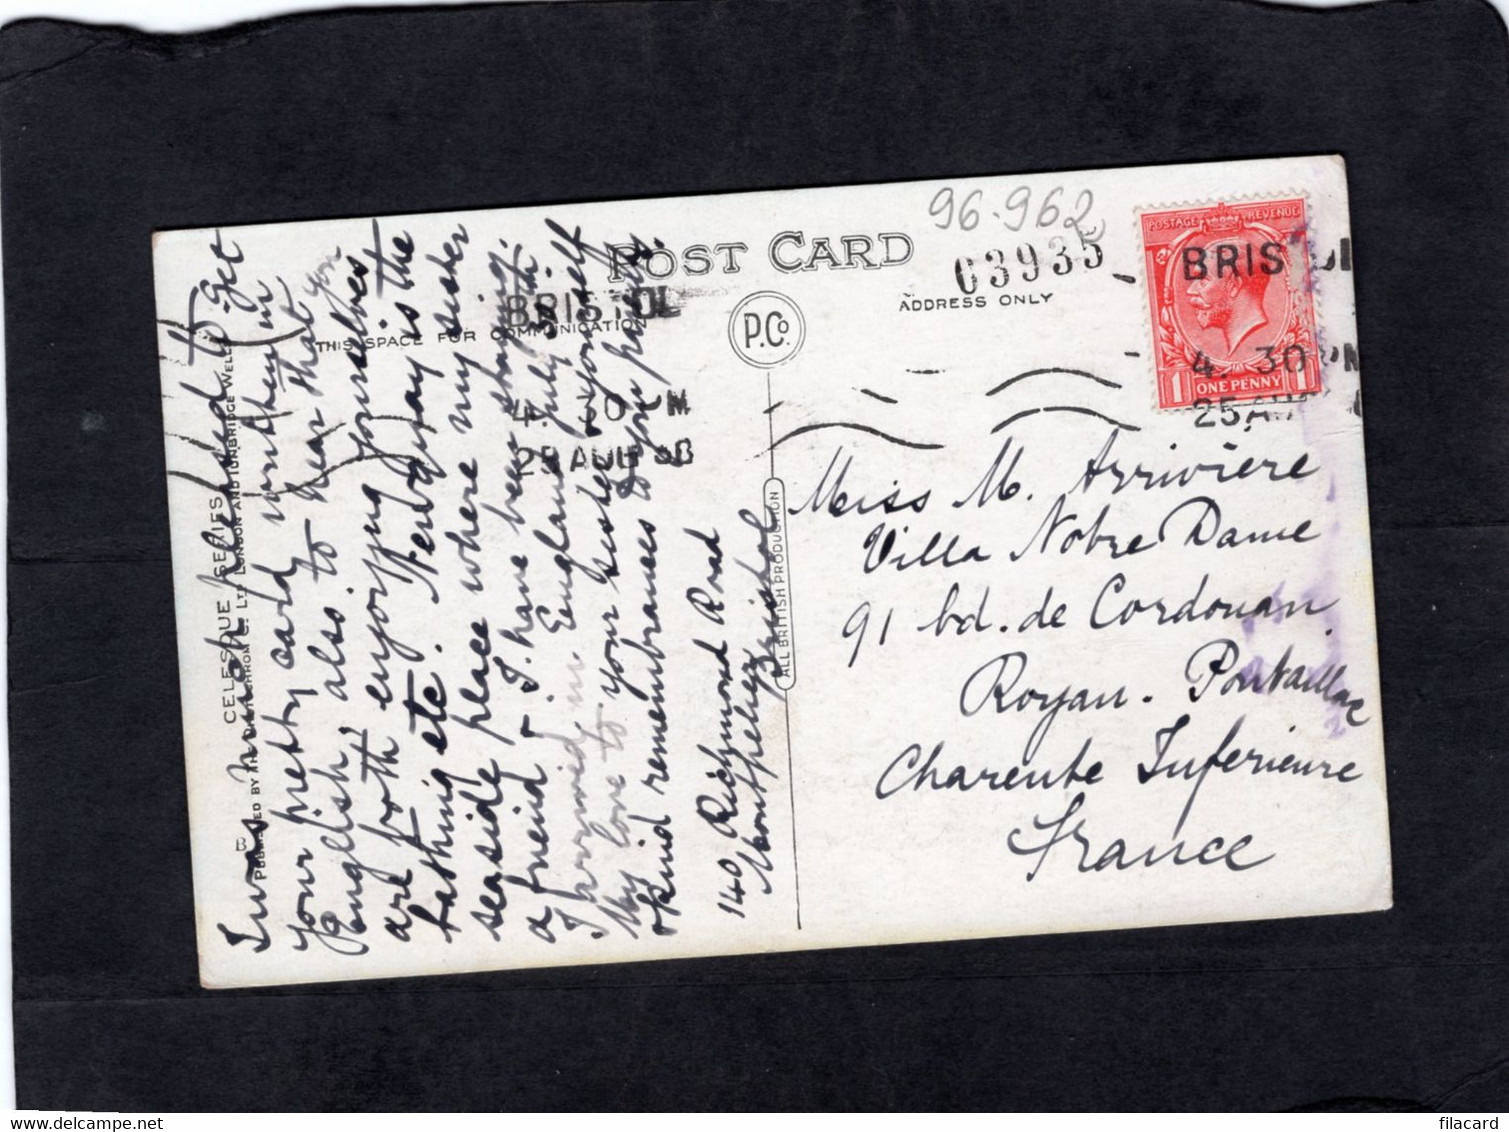 96.962
POST CARD
03935
ADDRESS ONLY
THIS SPACE FOR COMMUNICATION
BRISTOL
4. 30 PM
25 AUG
P.Co.
POSTAGE REVENUE
1 ONE PENNY 1
BRIS
4. 30 PM
25 AU
I was much pleased to get
your pretty card written in
English, also to hear that you
are both enjoying yourselves
bathing etc. Newquay is the
seaside place where my sister
a friend & I have been staying.
I arrived in England July
My love to your sister & yourself
& kind remembrances to your
140 Richmond Road
Montpelier
Bristol
Miss M. Arrivière
Villa Notre Dame
91 bd. de Cordouan
Royan - Pontaillac
Charente Inferieure
France
CELESQUE SERIES
PUBLISHED BY THE PHOTOCHROM Co. LTD. LONDON AND TUNBRIDGE WELLS
ALL BRITISH PRODUCTION
www.delcampe.net
filacard